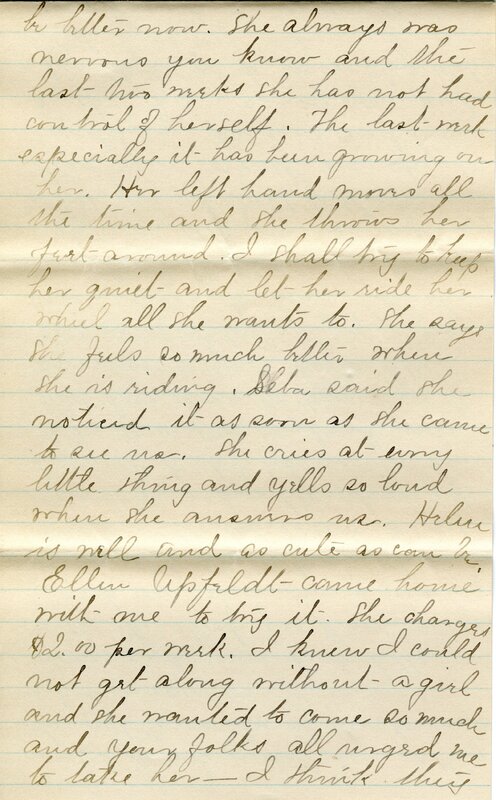 be better now. She always was
nervous you know and the
last two weeks she has not had
control of herself. The last week
especially it has been growing on
her. Her left hand moves all
the time and she throws her
feet around. I shall try to keep
her quiet and let her ride her
wheel all she wants to. She says
she feels so much better when
she is riding. Seba said she
noticed it as soon as she came
to see us. She cries at every
little thing and yells so loud
when she answers us. Helen
is well and as cute as can be.
Ellen Upfeldt came home
with me to try it. She charges
$2.00 per week. I knew I could
not get along without a girl
and she wanted to come so much
and your folks all urged me
to take her — I think they